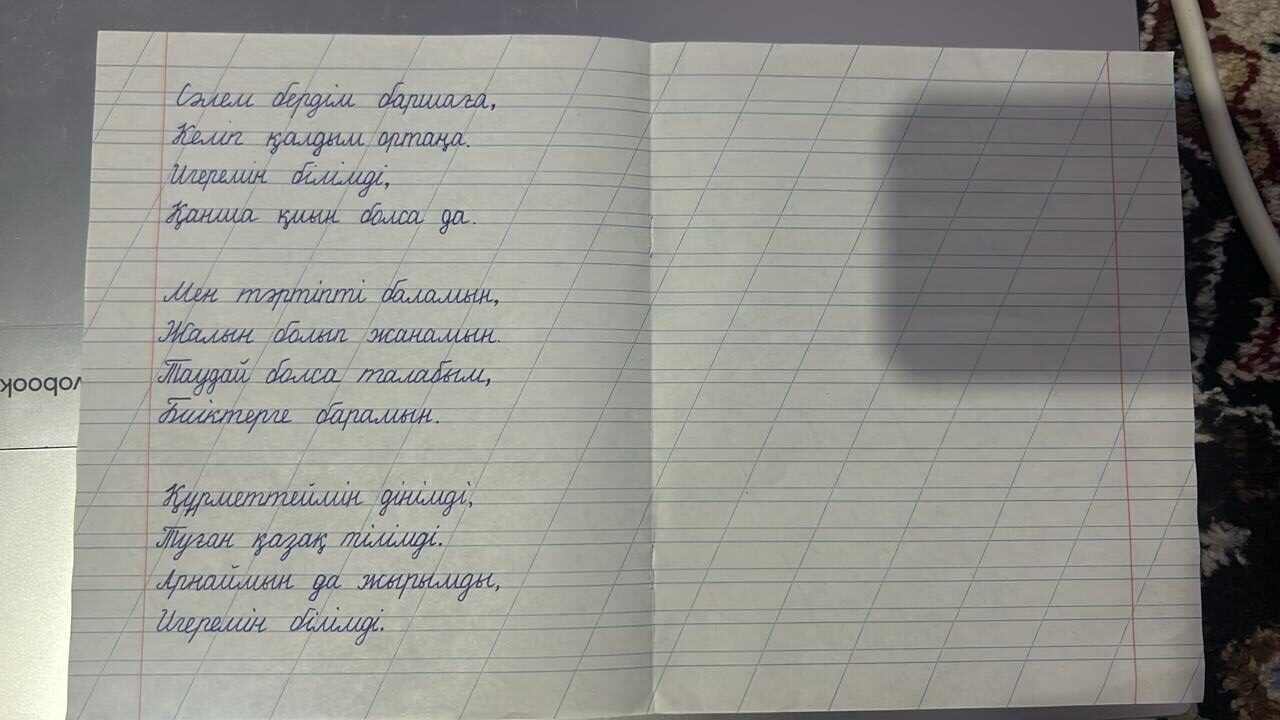 Сәлем бердім баршаға,
Келіп қалдым ортаңа.
Игеремін білімді,
Қанша қиын болса да.
Мен тәртіпті баламын,
Жалын болып жанамын.
Таудай болса талабым,
Биіктерге барамын.
Құрметтеймін дінімді,
Туған қазақ тілімді.
Арнаймын да жырымды,
Игеремін білімді.
vobook